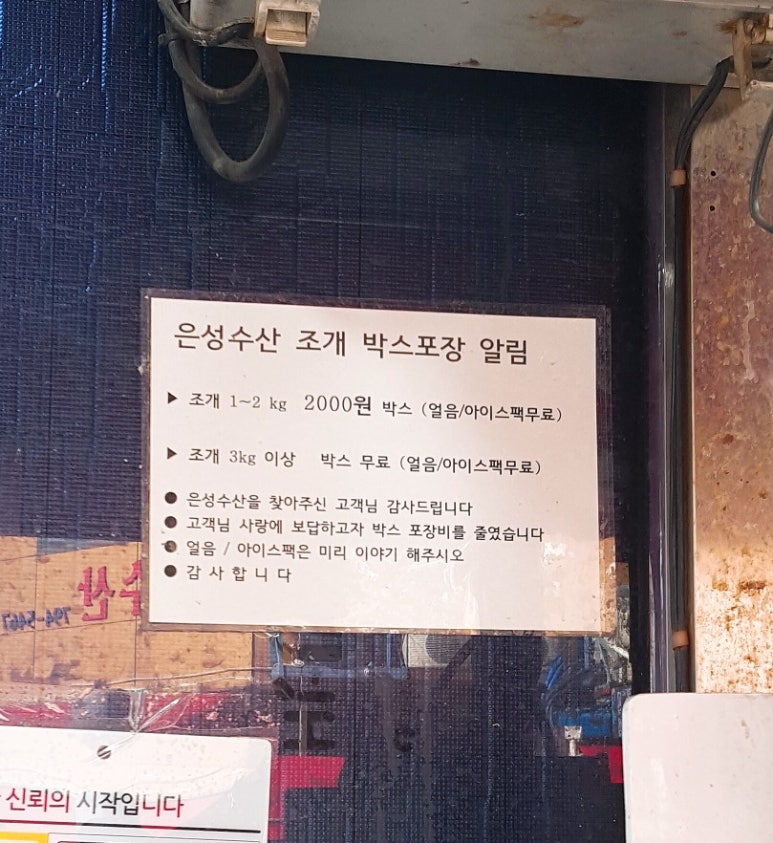 은성수산 조개 박스포장 알림
▶ 조개 1~2 kg 2000원 박스 (얼음/아이스팩무료)
▶ 조개 3kg 이상 박스 무료 (얼음/아이스팩무료)
● 은성수산을 찾아주신 고객님 감사드립니다
● 고객님 사랑에 보답하고자 박스 포장비를 줄였습니다
● 얼음 / 아이스팩은 미리 이야기 해주시오
● 감 사 합 니 다
수산
794-5467
신뢰의 시작입니다